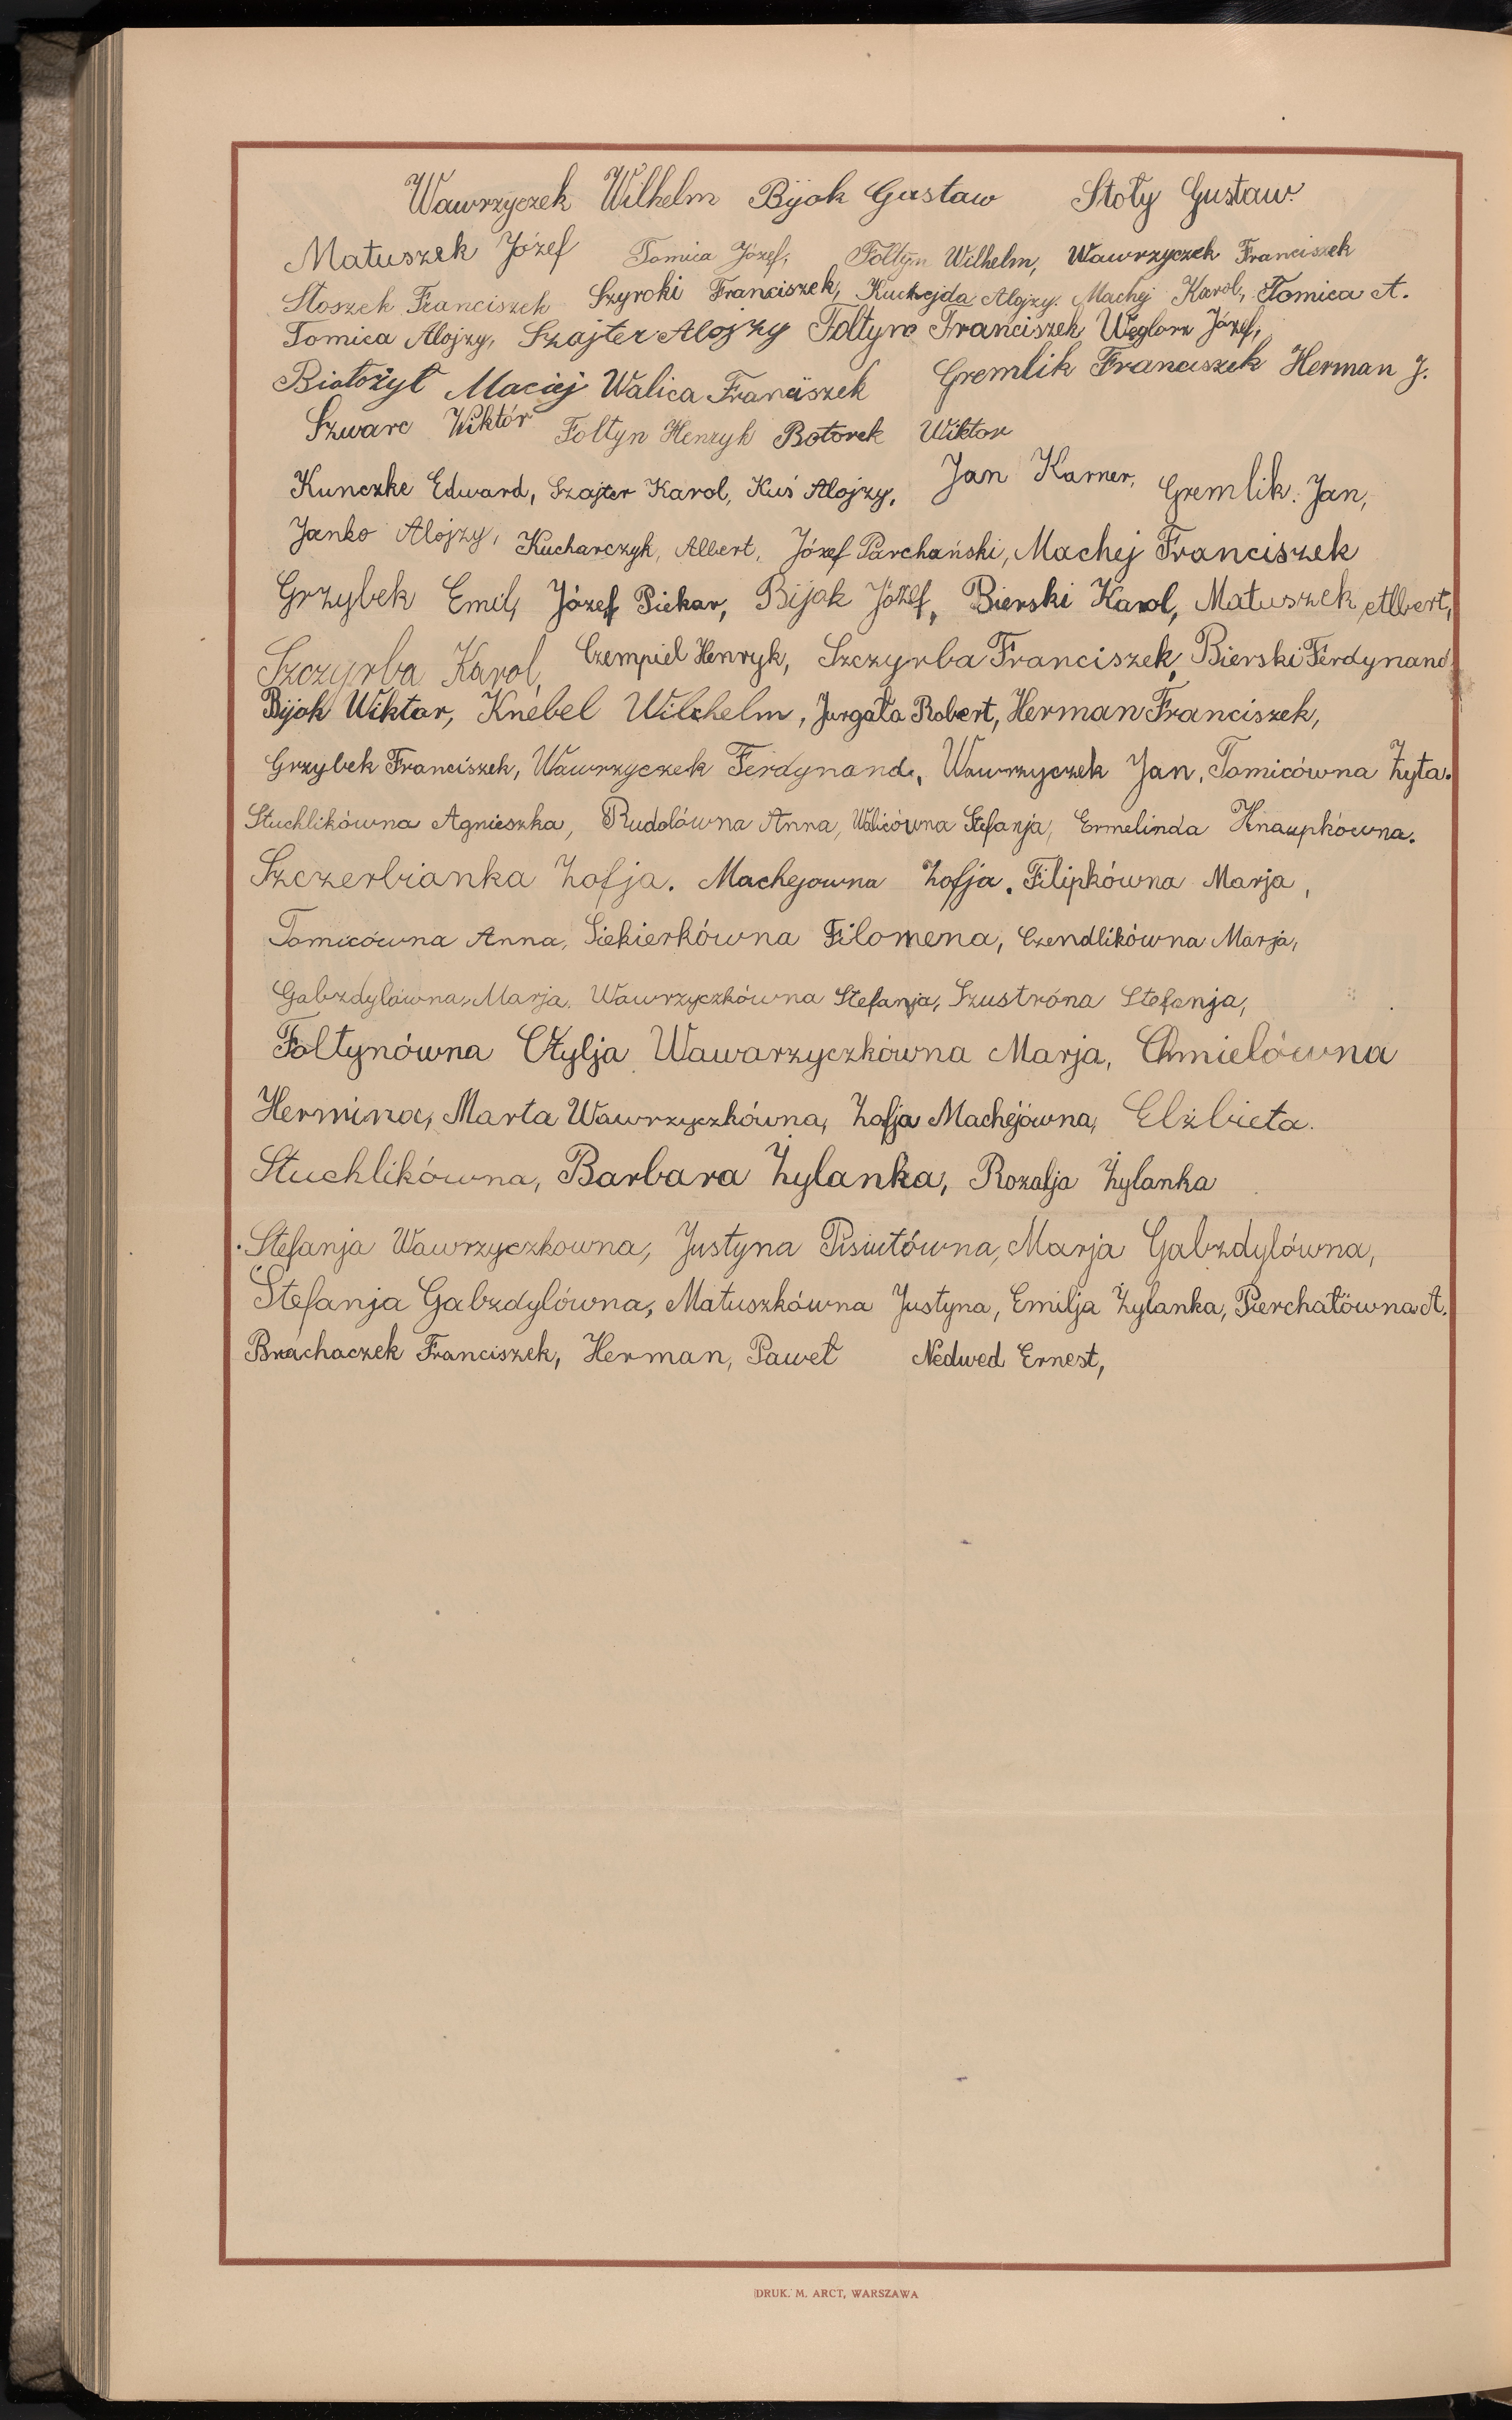 Wawrzyczek Wilhelm Bijok Gustaw Stoły Gustaw.
Matuszek Józef Tomica Józef, Foltyn Wilhelm, Wawrzyczek Franciszek
Stoszek Franciszek Szyroki Franciszek, Kuchejda Alojzy. Machej Karol, Tomica A.
Tomica Alojzy, Szajter Alojzy Foltyn Franciszek Węglorz Józef,
Białożyt Maciej Walica Franciszek Gremlik Franciszek Herman J.
Szwarc Wiktór Foltyn Henryk Botorek Wiktor
Kunczke Edward, Szajter Karol, Kuś Alojzy, Jan Karner, Gremlik. Jan,
Janko Alojzy, Kucharczyk, Albert, Józef Parchański, Machej Franciszek
Grzybek Emil, Józef Piekar, Bijok Józef, Bierski Karol, Matuszek Albert,
Szczyrba Karol, Czempiel Henryk, Szczyrba Franciszek, Bierski Ferdynand
Bijok Wiktor, Knebel Wilchelm, Jurgała Robert, Herman Franciszek,
Grzybek Franciszek, Wawrzyczek Ferdynand, Wawrzyczek Jan, Tomicówna Zyta.
Stuchlikówna Agnieszka, Rudolówna Anna, Walicówna Stefanja, Ermelinda Knaupkówna.
Szczerbianka Zofja. Machejowna Zofja. Filipkówna Marja,
Tomicówna Anna, Siekierkówna Filomena, Czendlikówna Marja,
Gabzdylówna Marja. Wawrzyczkówna Stefanja, Szustróna Stefanja,
Foltynówna Otylja Wawarzyczkówna Marja, Chmielówna
Hermina, Marta Wawrzyczkówna, Zofja Machejówna, Elżbieta.
Stuchlikówna, Barbara Żylanka, Rozalja Żylanka
Stefanja Wawrzyczkowna, Justyna Pisiutówna, Marja Gabzdylówna,
Stefanja Gabzdylówna, Matuszkówna Justyna, Emilja Żylanka, Pierchałówna A.
Brachaczek Franciszek, Herman, Paweł Nedwed Ernest,
DRUK. M. ARCT, WARSZAWA